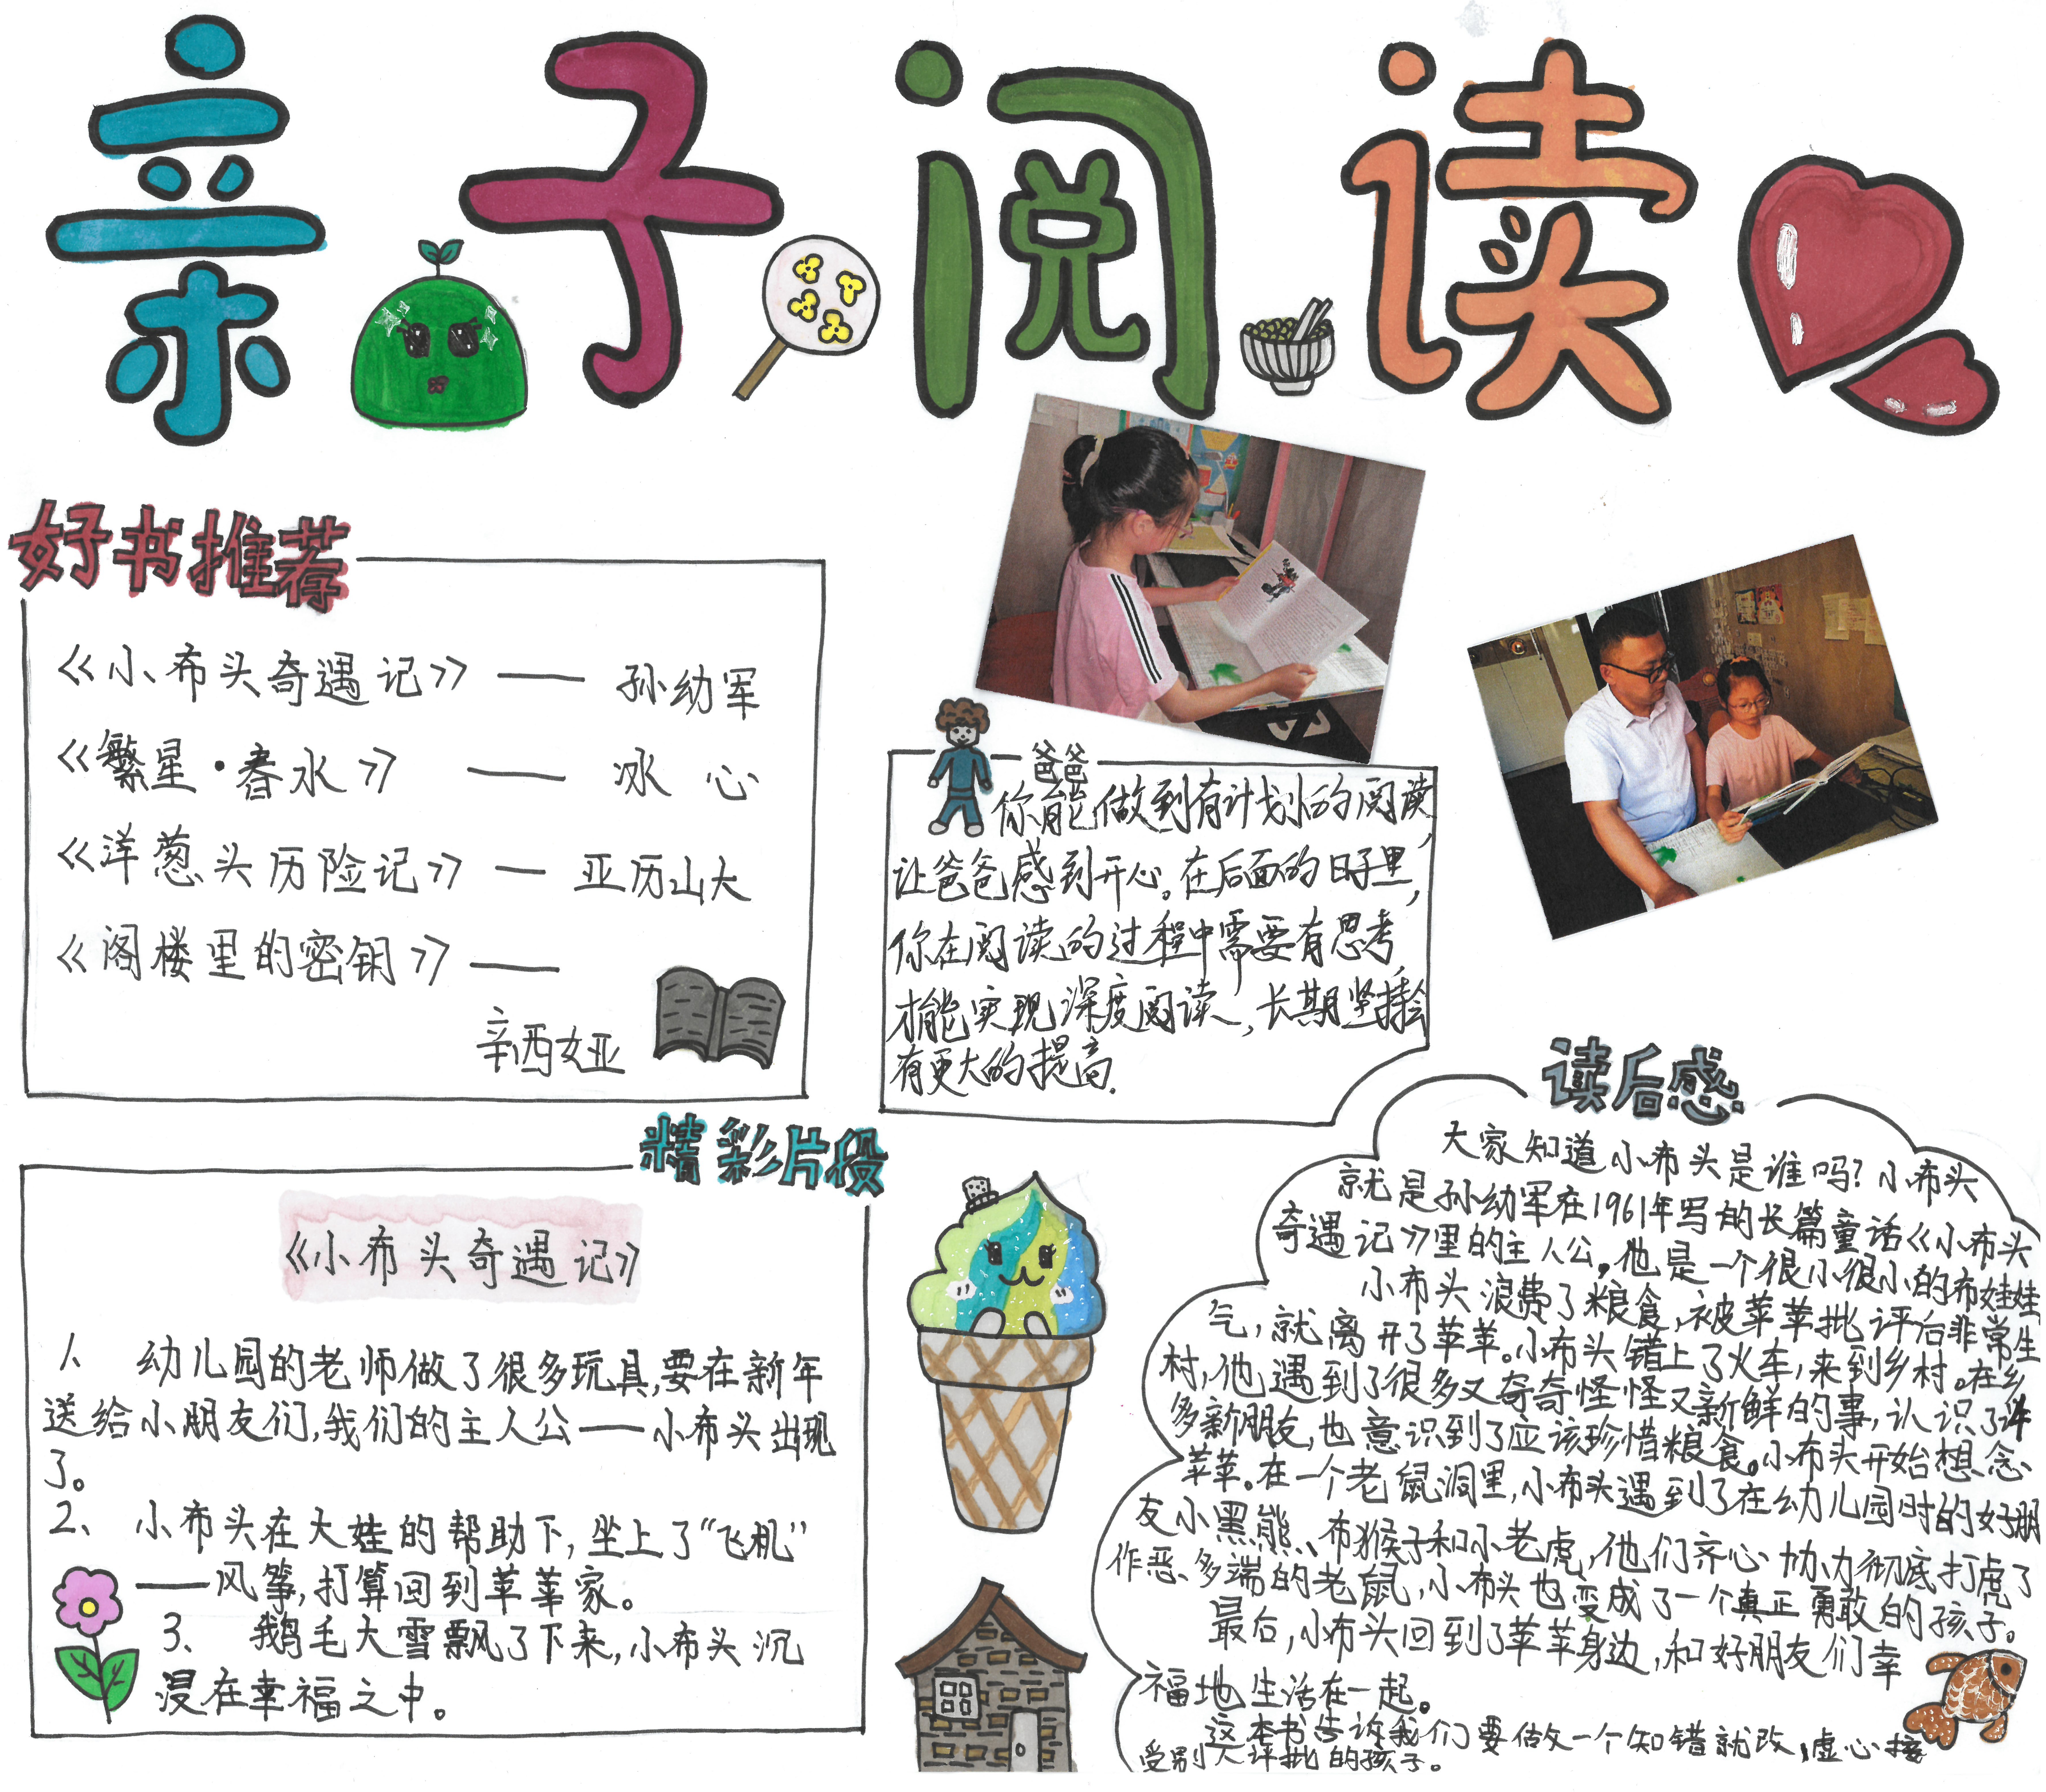 亲子阅读
好书推荐
《小布头奇遇记》—— 孙幼军
《繁星·春水》 —— 冰心
《洋葱头历险记》— 亚历山大
《阁楼里的密钥》——
辛西娅
爸爸
你能做到有计划的阅读,
让爸爸感到开心。在后面的日子里,
你在阅读的过程中需要有思考,
才能实现深度阅读,长期坚持会
有更大的提高.
精彩片段
《小布头奇遇记》
1、幼儿园的老师做了很多玩具,要在新年
送给小朋友们,我们的主人公——小布头出现
了。
2、小布头在大娃的帮助下,坐上了“飞机”
——风筝,打算回到苹苹家。
3、鹅毛大雪飘了下来,小布头沉
浸在幸福之中。
读后感
大家知道小布头是谁吗?小布头
就是孙幼军在1961年写的长篇童话《小布头
奇遇记》里的主人公,他是一个很小很小的布娃娃
小布头浪费了粮食,被苹苹批评后非常生
气,就离开了苹苹。小布头错上了火车,来到乡村。在乡
村,他遇到了很多又奇奇怪怪又新鲜的事,认识了许
多新朋友,也意识到了应该珍惜粮食。小布头开始想念
苹苹。在一个老鼠洞里,小布头遇到了在幼儿园时的好朋
友小黑熊、布猴子和小老虎,他们齐心协力彻底打虎了
作恶多端的老鼠,小布头也变成了一个真正勇敢的孩子。
最后,小布头回到了苹苹身边,和好朋友们幸
福地生活在一起。
这本书告诉我们要做一个知错就改,虚心接
受别人评批的孩子。